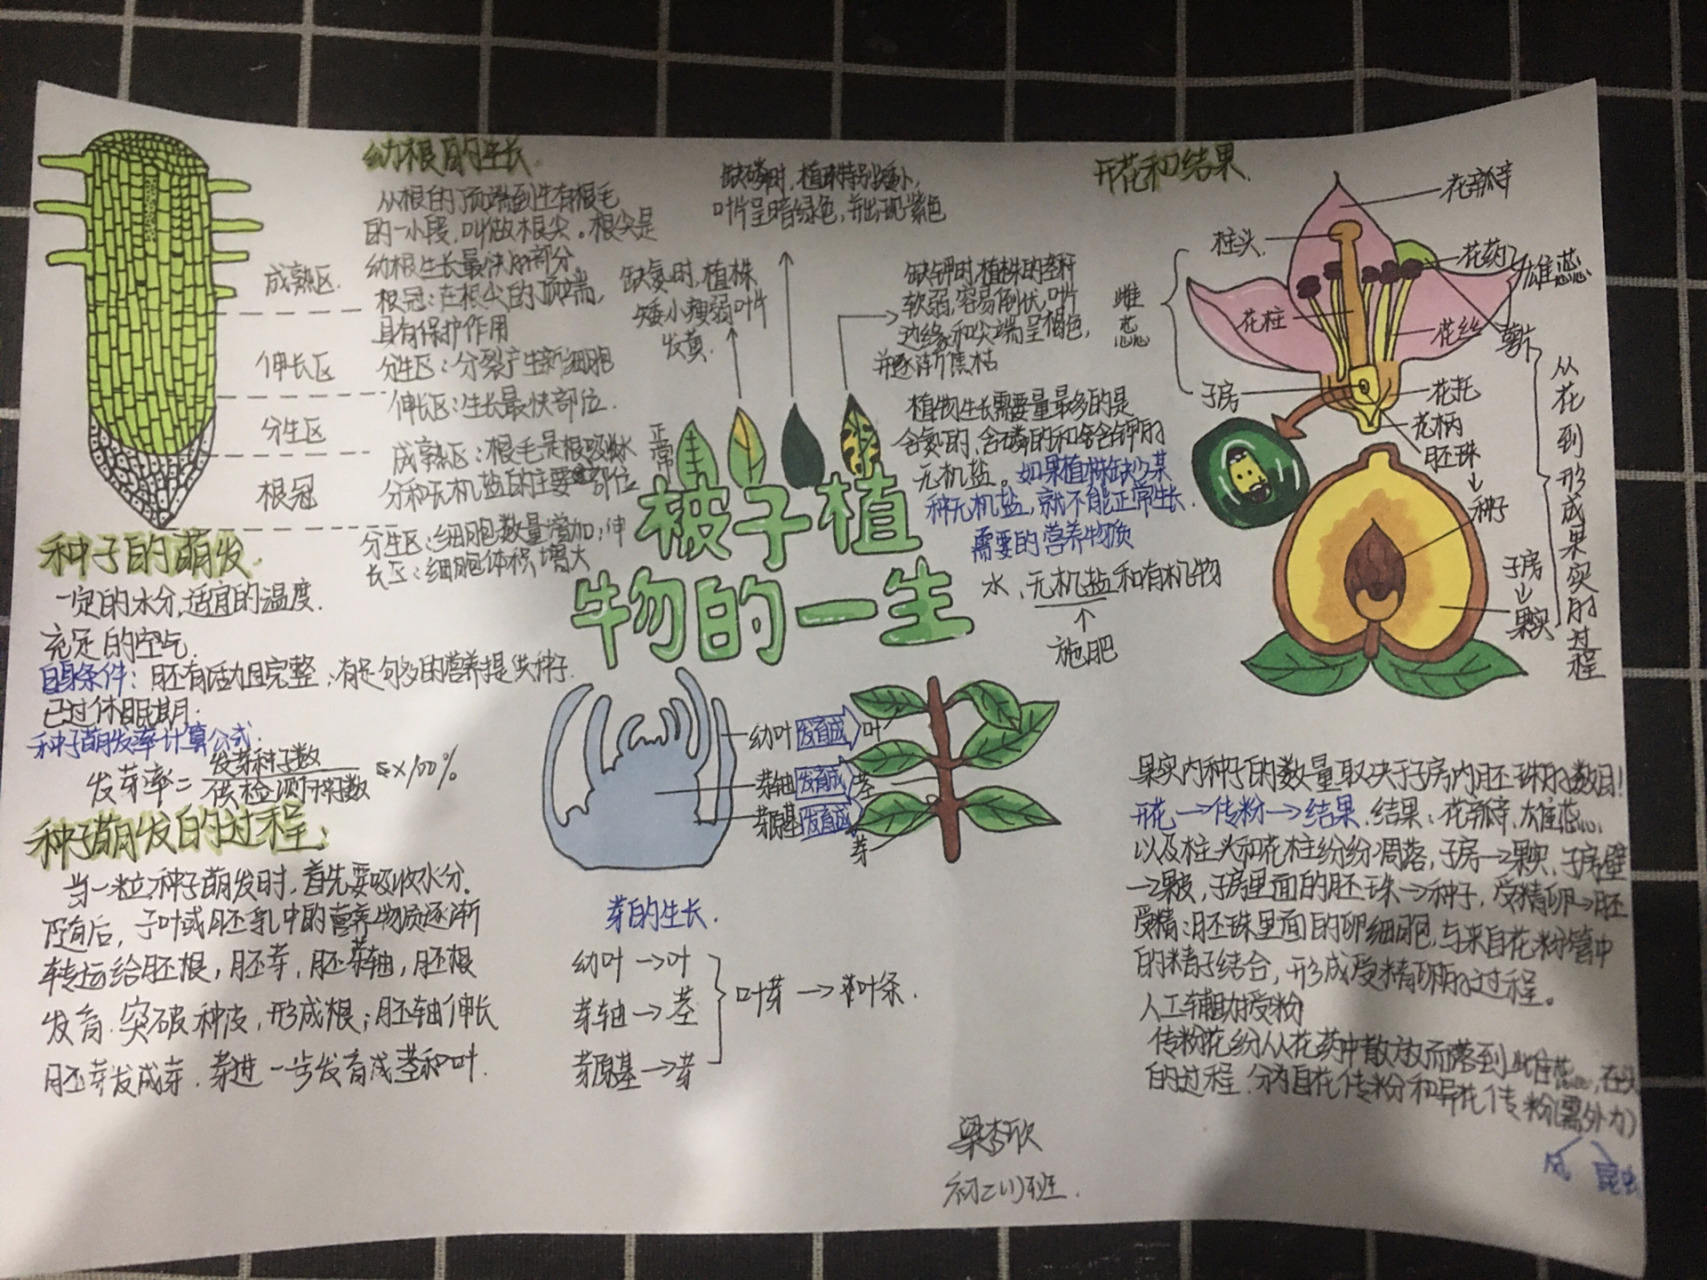 幼根的生长
从根的顶端到生有根毛
的一小段,叫做根尖。根尖是
幼根生长最快的部分
根冠:在根尖的顶端,
具有保护作用
分生区:分裂产生新细胞
伸长区:生长最快部位.
成熟区:根毛是根吸收水
分和无机盐的主要部位
分生区:细胞数量增加,伸
长区:细胞体积增大
成熟区
伸长区
分生区
根冠
种子的萌发.
一定的水分,适宜的温度.
充足的空气
自身条件:胚有活力且完整,有足够多的营养提供种子
已过休眠期.
种子萌发率计算公式:
发芽率=发芽种子数/供检测种子数×100%
种子萌发的过程:
当一粒种子萌发时,首先要吸收水分.
随后,子叶或胚乳中的营养物质逐渐
转运给胚根,胚芽,胚轴,胚根
发育.突破种皮,形成根;胚轴伸长
胚芽发成芽.芽进一步发育成茎和叶.
缺磷时,植株特别矮小,
叶片呈暗绿色,并出现紫色
缺氮时,植株
矮小瘦弱叶片
发黄.
缺钾时,植株的茎秆
软弱,容易倒伏,叶片
边缘和尖端呈褐色,
并逐渐焦枯
正常
植物生长需要量最多的是
含氮的,含磷的和含钾的
无机盐。如果植株缺少某
种无机盐,就不能正常生长.
需要的营养物质
水、无机盐和有机物
↑
施肥
被子植
物的一生
幼叶 发育成 叶
芽轴 发育成 茎
芽原基 发育成 芽
芽的生长.
幼叶→叶
芽轴→茎
芽原基→芽
叶芽→枝叶条.
开花和结果
花瓣
柱头
花药
雄蕊
雌蕊
花柱
花丝
萼片
子房
花托
花柄
胚珠
↓
种子
子房
↓
果实
从花到形成果实的过程
果实内种子的数量取决于子房内胚珠的数目!
开花→传粉→结果.结果:花瓣、雄蕊、
以及柱头和花柱纷纷凋落,子房→果实,子房壁
→果皮,子房里面的胚珠→种子,受精卵→胚
受精:胚珠里面的卵细胞,与来自花粉管中
的精子结合,形成受精卵的过程。
人工辅助授粉
传粉花纷从花药中散放而落到雌蕊,柱头
的过程.分为自花传粉和异花传粉(需外力)
风 昆虫
梁李欣
初二(1)班.